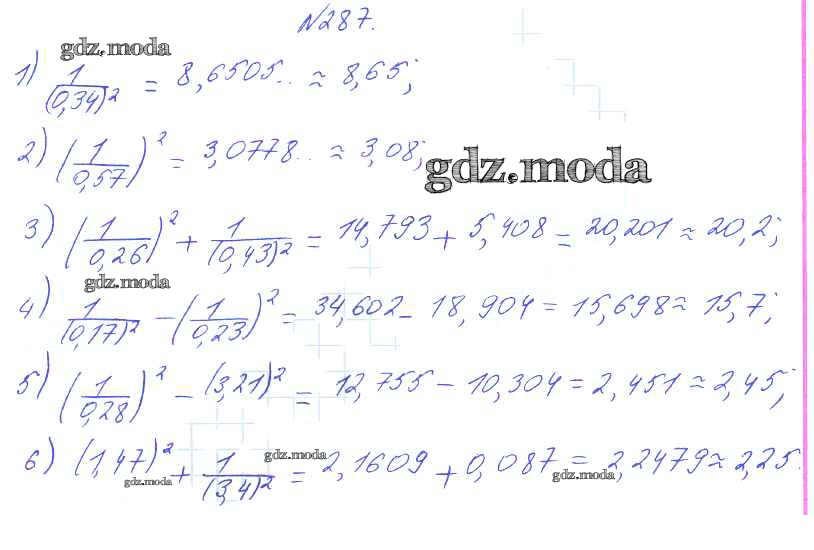 N287.
gdz.moda
1) 1/(0,34)² = 8,6505.. ≈ 8,65;
2) (1/0,57)² = 3,0778.. ≈ 3,08;
gdz.moda
3) (1/0,26)² + 1/(0,43)² = 14,793 + 5,408 = 20,201 ≈ 20,2;
gdz.moda
4) 1/(0,17)² - (1/0,23)² = 34,602 - 18,904 = 15,698 ≈ 15,7;
5) (1/0,28)² - (3,21)² = 12,755 - 10,304 = 2,451 ≈ 2,45;
6) (1,47)² + 1/(3,4)² = 2,1609 + 0,087 = 2,2479 ≈ 2,25.
gdz.moda
gdz.moda
gdz.moda